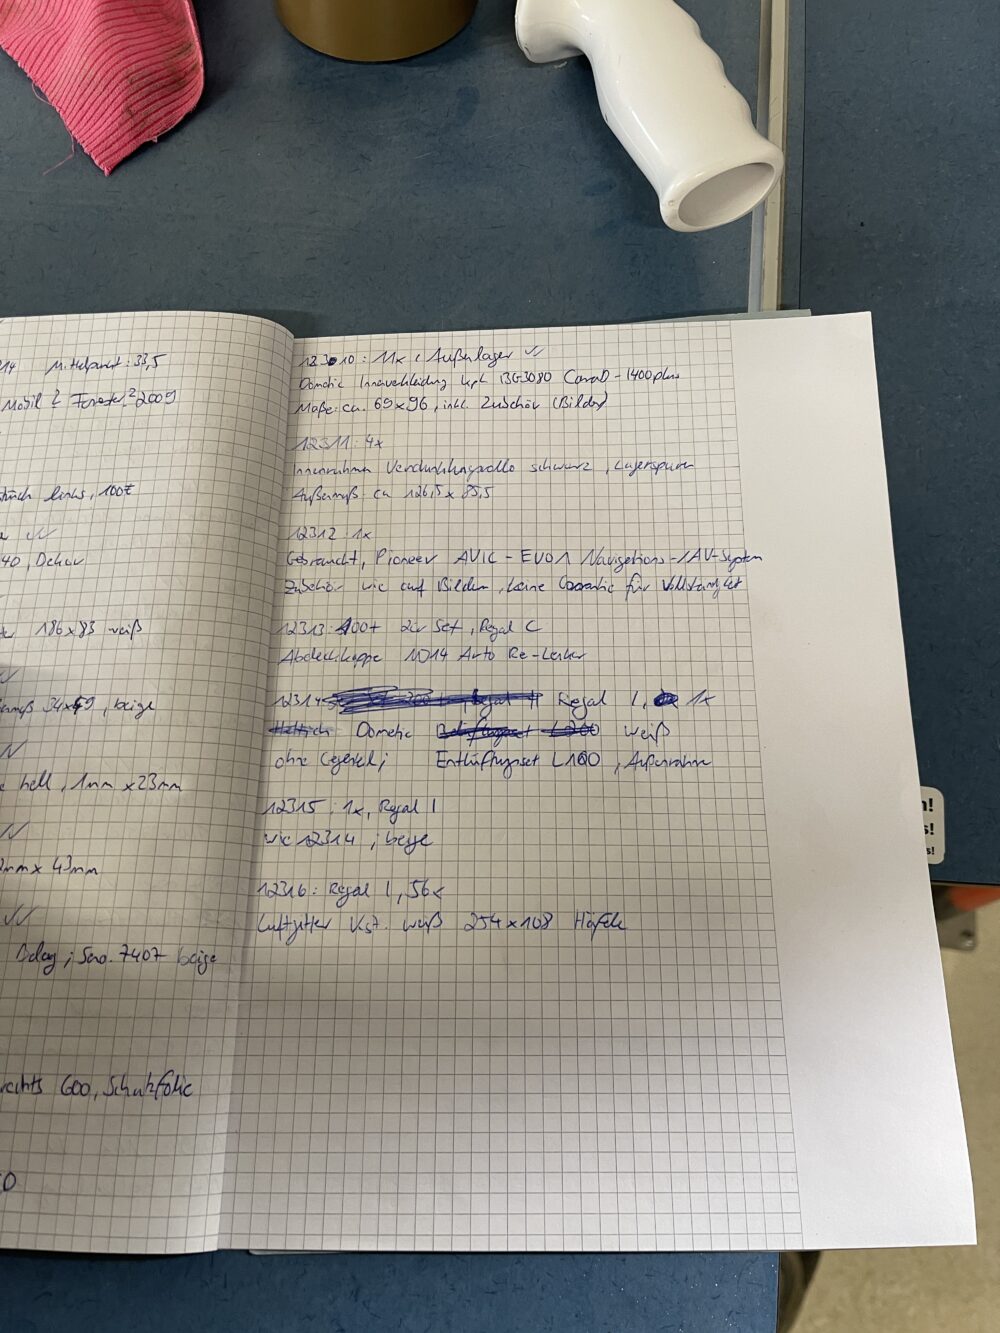 14 Mittelpunkt: 33,5
Mobil ? Forester? 2009
links, 100
40, Dekor
186x83 weiß
34x59, beige
hell, 1mm x 23mm
2mm x 43mm
Belag; Sno. 7407 beige
rechts 600, Schutzfolie
12310: 11x, Außenlager
Dometic Innenverkleidung kpl. 1400plus
Maße ca. 69x96, inkl. Zubehör (Bilder)
12311: 4x
Innenrahmen Verdunklungsrollo schwarz, Lagerspuren
Außenmaß ca 126,5 x 85,5
12312: 1x
Gebraucht, Pioneer AVIC-EVO1 Navigations-/AV-System
Zubehör wie auf Bildern, keine Garantie für Vollständigkeit
12313: 100+ 2er Set, Regal C
Abdeckkappe 1014 Arto Re-Lenker
12314: Regal 1, 1x
Dometic weiß
ohne Gegenteil; Entlüftungsset L100, Außenrahmen
12315: 1x, Regal 1
wie 12314; beige
12316: Regal 1, 56x
Luftgitter Kst. weiß 254x108 Häfele
n!
s!
s!